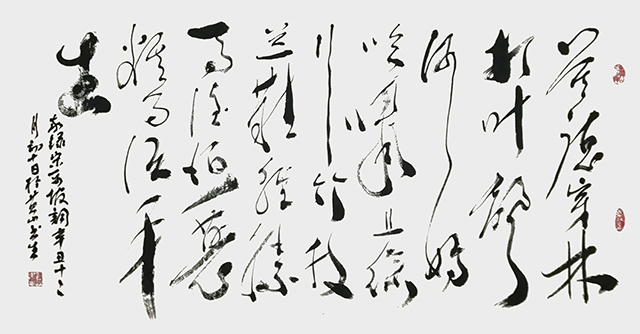 莫听穿林
打叶声
何妨
吟啸且徐
行竹杖
芒鞋轻胜
马谁怕一蓑
烟雨任平
生
录宋东坡词辛丑十二
月初十日於